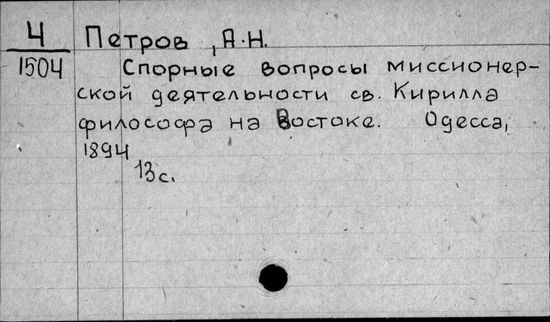 Ч Петров, А.Н.
1504 Спорные вопросы миссионер-
ской деятельности св. Кирилла
философа на Востоке. Одесса,
1894
13 с.